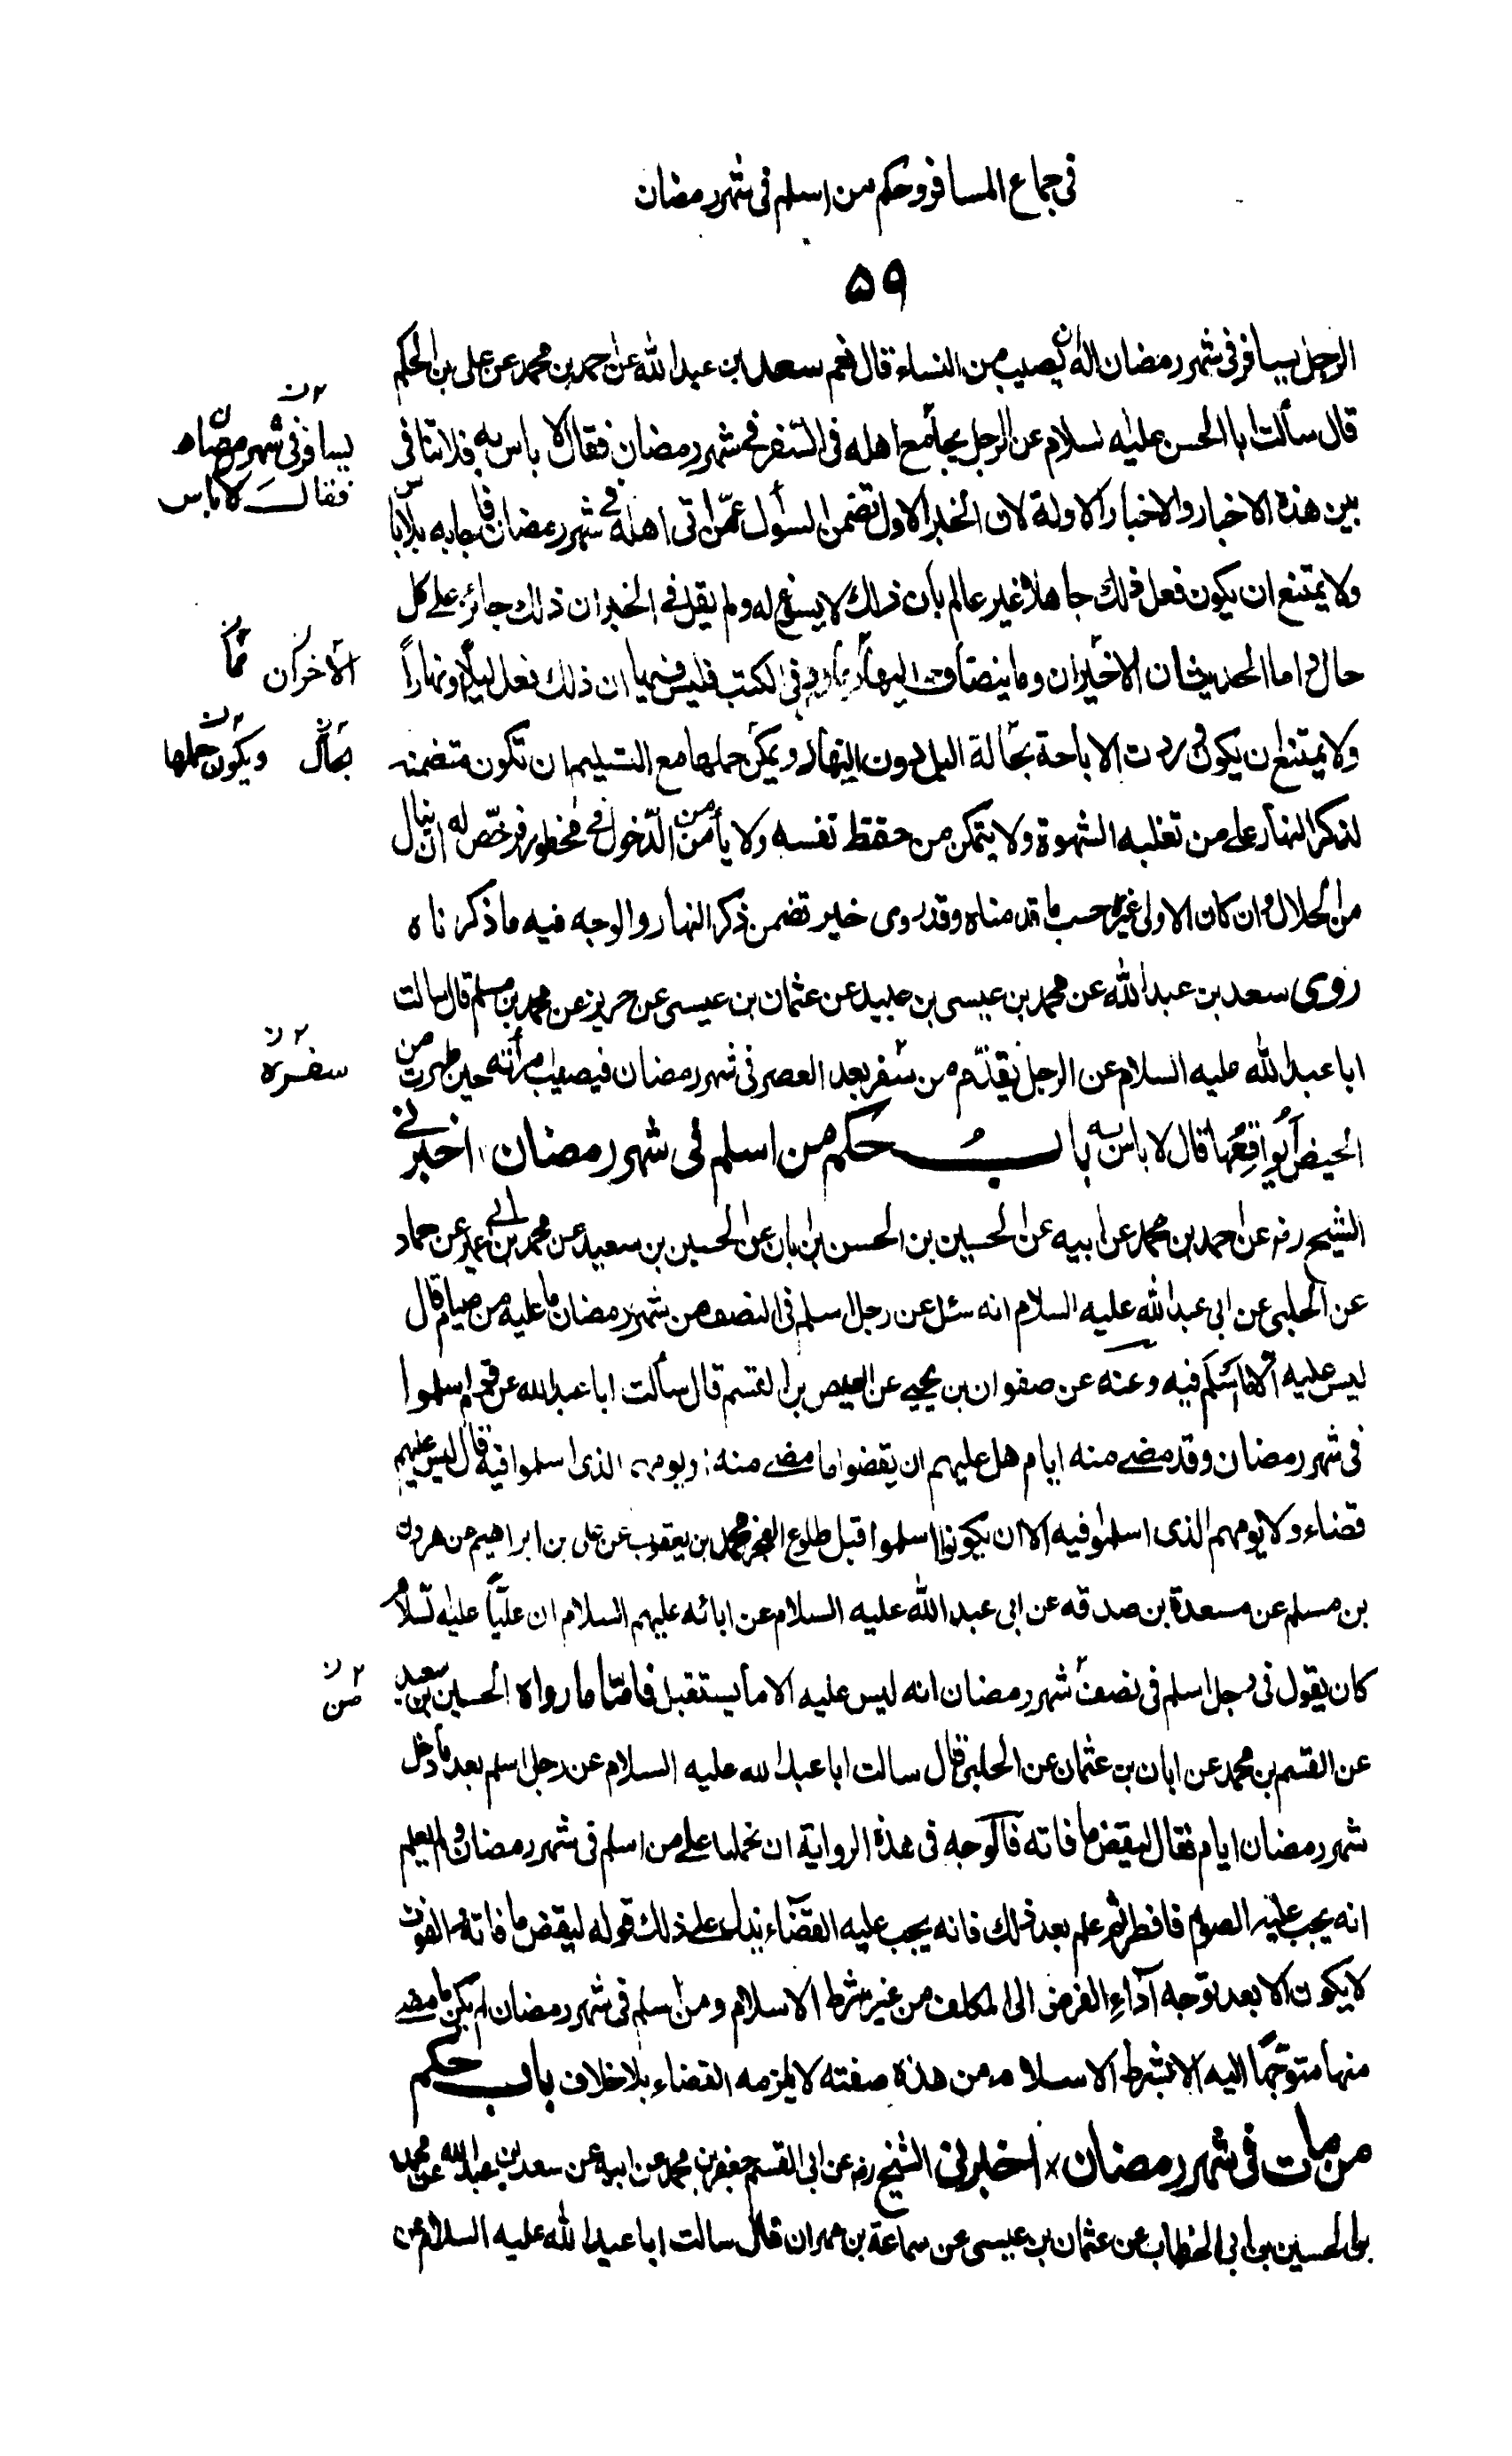 في جماع المسافر وحكم من اسلم في شهر رمضان
۵۹
الرجل يسافر في شهر رمضان اله ان يصيب من النساء قال نعم سعد بن عبد الله عن احمد بن محمد عن علي بن الحكم
قال سألت ابا الحسن عليه السلام عن الرجل يجامع اهله في السّفر في شهر رمضان فقال لا باس به فلا تنافى
٢ ن
يسافر في شهر رمضان
فقال لا باس
بين هذه الاخبار والاخبار الاولة لان الخبر الاول تضمن السؤل عمّن اتى اهله في شهر رمضان فاجابه بلا باس
ولا يمتنع ان يكون فعل ذلك جاهلا غير عالم بأن ذلك لا يسوغ له ولم يقل في الخبر ان ذلك جائز على كل
حال واما الحديثان الاخيران وما ينضاف اليهما في الكتب فليس فيها ان ذلك فعل ليلا ونهاراً
الأخران
مما
ولا يمتنع ان يكون وردت الاباحة بحالة اليل دون النهار ويمكن حملها مع التسليم ان تكون متضمنه
بحال
ويكون حملها
لذكر النهار على من تغلبه الشهوة ولا يتمكن من حفظ نفسه ولا يأمن من الدّخول في محظور فرخّص له ان ينال
من الحلال وان كان الاولى غيره حسب ما قدمناه وقد روى خبر تضمن ذكر النهار والوجه فيه ما ذكرناه
روى سعد بن عبد الله عن محمد بن عيسى بن عبيد عن عثمان بن عيسى عن حريز عن محمد بن مسلم قال سالت
ابا عبد الله عليه السلام عن الرجل يقدّم من سفر بعد العصر في شهر رمضان فيصيب امرأته حين طهرت من
٢ ن
سفره
الحيض أيواقعها قال لا باس به باب حكم من اسلم في شهر رمضان اخبرني
الشيخ ره عن احمد بن محمد عن ابيه عن الحسين بن الحسن بن ابان عن الحسين بن سعيد عن محمد بن ابي عمير عن حماد
عن الحلبي عن ابي عبد الله عليه السلام انه سئل عن رجل اسلم في النصف من شهر رمضان ما عليه من صيام قال
ليس عليه الا ما اسلم فيه وعنه عن صفوان بن يحيى عن العيص بن القسم قال سألت ابا عبد الله عن قوم اسلموا
في شهر رمضان وقد مضى منه ايام هل عليهم ان يقضوا ما مضى منه او يومهم الذى اسلموا فيه قال ليس عليهم
قضاء ولا يومهم الذى اسلموا فيه الا ان يكونوا اسلموا قبل طلوع الفجر محمد بن يعقوب عن علي بن ابراهيم عن هرون
بن مسلم عن مسعدة بن صدقه عن ابي عبد الله عليه السلام عن ابائه عليهم السلام ان عليّاً عليه السلام
كان يقول في رجل اسلم في نصف شهر رمضان انه ليس عليه الا ما يستقبل فامّا ما رواه الحسين بن سعيد
٢ ن
من
عن القسم بن محمد عن ابان بن عثمان عن الحلبي قال سالت ابا عبد الله عليه السلام عن رجل اسلم بعد ما دخل
شهر رمضان ايام فقال ليقض ما فاته فالوجه في هذه الرواية ان نحملها على من اسلم في شهر رمضان ولم يعلم
انه يجب عليه الصوم فافطر ثم علم بعد ذلك فانه يجب عليه القضاء يدل على ذلك قوله ليقض ما فاته والفوت
لا يكون الا بعد توجه آداء الفرض الى المكلف من غير شرط الاسلام ومن اسلم في شهر رمضان لم يكن ما مضى
منها متوجّهًا اليه الا بشرط الاسلام ومن هذه صفته لا يلزمه القضاء بلا خلاف باب حكم
من مات في شهر رمضان × اخبرنى الشيخ ره عن ابي القسم جعفر بن محمد عن ابيه عن سعد بن عبد الله عن محمد
بن الحسين بن ابي الخطاب عن عثمان بن عيسى عن سماعة بن مهران قال سالت ابا عبد الله عليه السلام عن